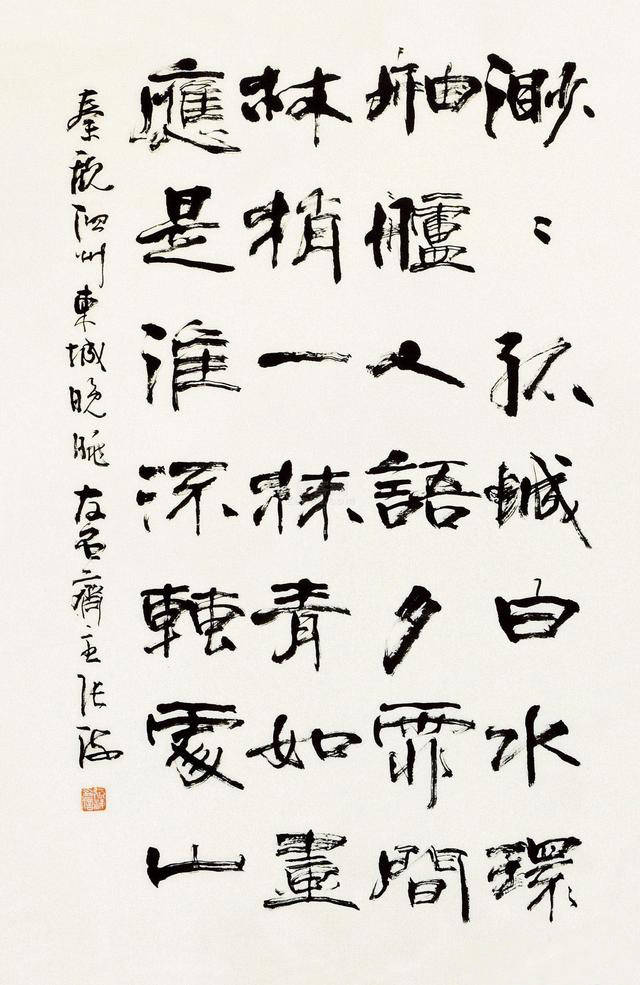 渺〻孤城白水環
舳艫人語夕霏間
林梢一抹青如畫
應是淮流轉處山
秦觀泗州東城晚眺 齋主張海